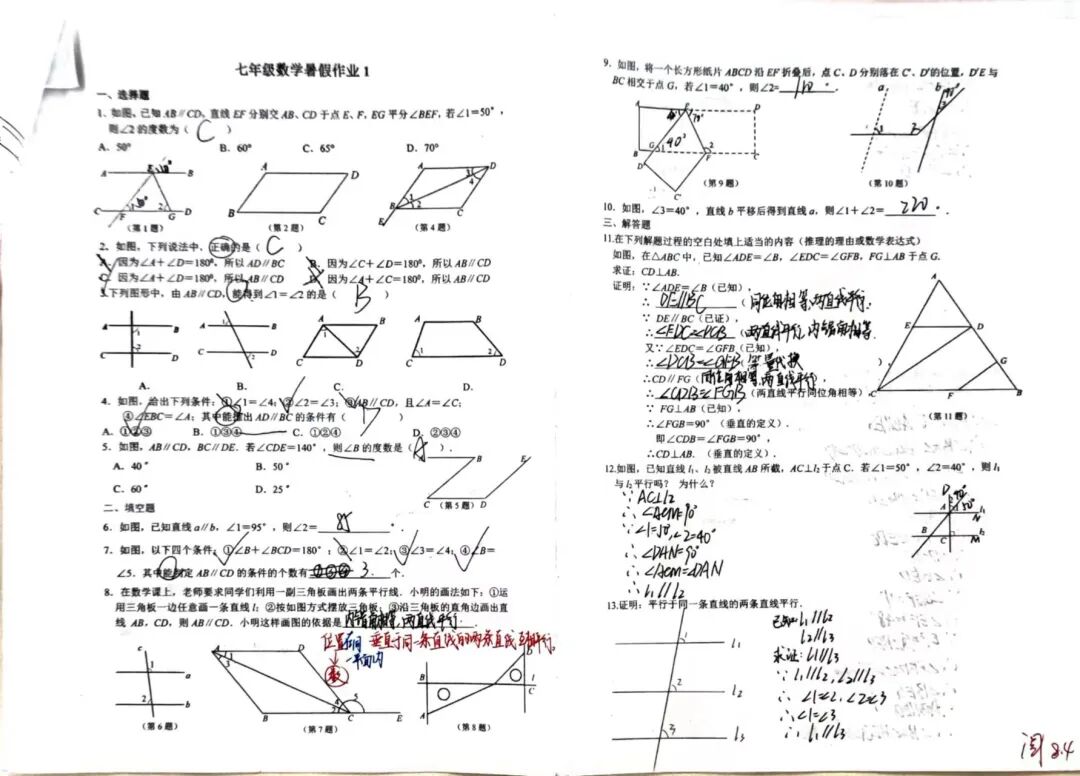 七年级数学暑假作业1
一、选择题
1、如图,已知AB∥CD,直线EF分别交AB、CD于点E、F,EG平分∠BEF,若∠1=50°,
则∠2的度数为( C )
A. 50° B. 60° C. 65° D. 70°
(第1题) (第2题) (第4题)
2. 如图,下列说法中,正确的是( C )
A. 因为∠A+∠D=180°,所以AD∥BC B. 因为∠C+∠D=180°,所以AB∥CD
C. 因为∠A+∠D=180°,所以AB∥CD D. 因为∠A+∠C=180°,所以AB∥CD
3.下列图形中,由AB∥CD,能得到∠1=∠2的是( B )
A. B. C. D.
4. 如图,给出下列条件:①∠1=∠4;②∠2=∠3;③AB∥CD,且∠A=∠C;
④∠EBC=∠A;其中能推出AD∥BC的条件有( )
A. ①②③ B. ①③④ C. ①②④ D. ②③④
5. 如图,AB∥CD,BC∥DE.若∠CDE=140°,则∠B的度数是( A ).
A. 40° B. 50°
C. 60° D. 25°
(第5题)
二、填空题
6. 如图,已知直线a∥b,∠1=95°,则∠2= 85 °.
7. 如图,以下四个条件:①∠B+∠BCD=180°;②∠1=∠2;③∠3=∠4;④∠B=
∠5.其中能判定AB∥CD的条件的个数有 3 个.
8. 在数学课上,老师要求同学们利用一副三角板画出两条平行线.小明的画法如下:①运
用三角板一边任意画一条直线l;②按如图方式摆放三角板;③沿三角板的直角边画出直
线AB,CD,则AB∥CD.小明这样画图的依据是 内错角相等,两直线平行
位置 同一平面内 垂直于同一条直线的两条直线互相平行。
数
(第6题) (第7题) (第8题)
9. 如图,将一个长方形纸片ABCD沿EF折叠后,点C、D分别落在C'、D'的位置,D'E与
BC相交于点G,若∠1=40°,则∠2= 110 °.
(第9题) (第10题)
10. 如图,∠3=40°,直线b平移后得到直线a,则∠1+∠2= 220 °.
三、解答题
11.在下列解题过程的空白处填上适当的内容(推理的理由或数学表达式)
如图,在△ABC中,已知∠ADE=∠B,∠EDC=∠GFB,FG⊥AB于点G.
求证:CD⊥AB.
证明:∵∠ADE=∠B(已知),
∴ DE∥BC (同位角相等,两直线平行).
∵ DE∥BC(已证),
∴ ∠EDC=∠DCB (两直线平行,内错角相等
又∵∠EDC=∠GFB(已知),
∴ ∠DCB=∠GFB (等量代换 ),
∴CD∥FG(同位角相等,两直线平行.
∴ ∠CDB=∠FGB (两直线平行同位角相等)
∵ FG⊥AB(已知),
∴∠FGB=90°(垂直的定义).
即∠CDB=∠FGB=90°,
∴CD⊥AB.(垂直的定义).
(第11题)
12.如图,已知直线l₁、l₂被直线AB所截,AC⊥l₂于点C.若∠1=50°,∠2=40°,则l₁
与l₂平行吗? 为什么?
∵AC⊥l₂
∴∠ACM=90°
∵∠1=50°,∠2=40°
∴∠DAN=90°
∴∠ACM=∠DAN
∴l₁∥l₂
13.证明:平行于同一条直线的两条直线平行.
已知 l₁∥l₂
l₂∥l₃
求证: l₁∥l₃
∵ l₁∥l₂, l₂∥l₃
∴ ∠1=∠2, ∠2=∠3
∴ ∠1=∠3
∴ l₁∥l₃
阅 8.4